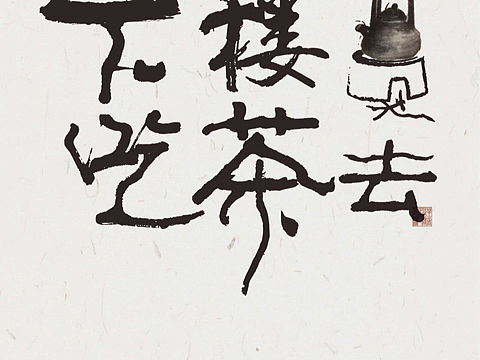 下楼
吃茶去